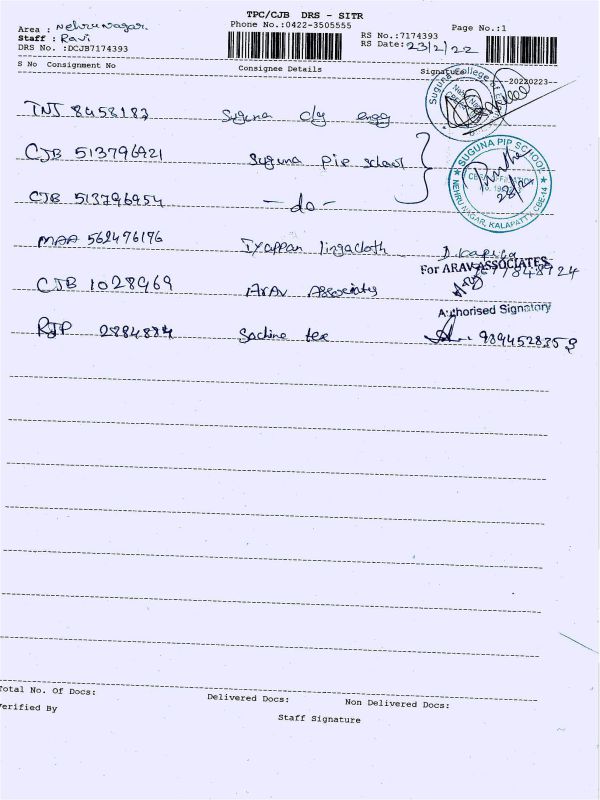 TPC/CJB DRS - SITR
Area : Nehru Nagar Phone No.:0422-3505555 Page No.:1
Staff : Ravi RS No.:7174393
DRS No. :DCJB7174393 RS Date: 23/2/22
S No Consignment No Consignee Details Signature 20220223
TNJ 8458187 Suguna clg engg
CJB 513796921 Suguna pip school
SUGUNA PIP SCHOOL
NEHRU NAGAR, KALAPATTI, CBE-14
CJB 513796954 - do -
MAA 562476176 Iyappan lingacloth
For ARAV ASSOCIATES
CJB 1028969 Arav Associates
Authorised Signatory
RJP 2284884 Sachine tex 9894528359
Total No. Of Docs: Delivered Docs: Non Delivered Docs:
Verified By Staff Signature